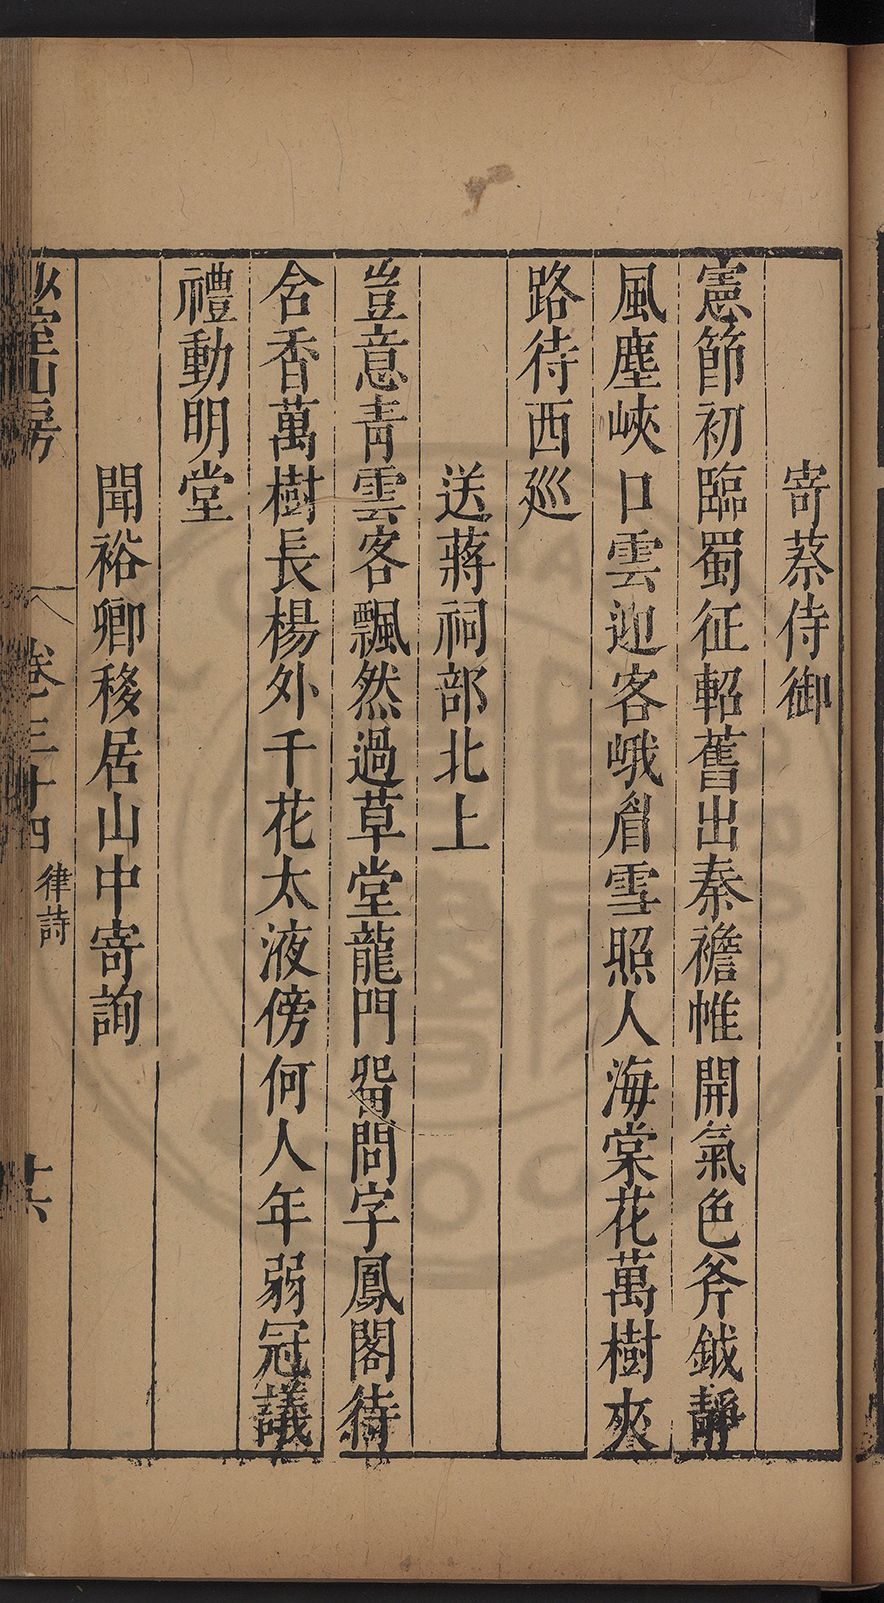 寄蔡侍御
憲節初臨蜀征軺舊出秦襜帷開氣色斧鉞靜
風塵峽口雲迎客峨眉雪照人海棠花萬樹夾
路待西廵
送蔣祠部北上
豈意青雲客飄然過草堂龍門畱問字鳳閣待
含香萬樹長楊外千花太液傍何人年弱冠議
禮動明堂
聞裕卿移居山中寄詢
少室山房
卷三十四
律詩
十六